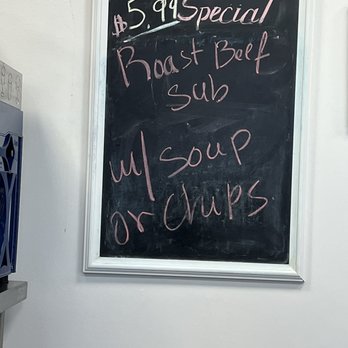 $5.99 Special
Roast Beef
Sub
w/ soup
or chips